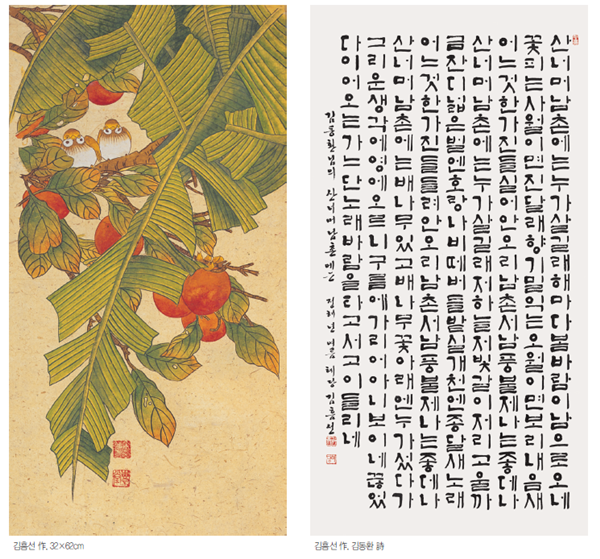 김흠선 作, 32×62cm
산너머남촌에는누가살길래해마다봄바람이남으로오네
꽃피는사월이면진달래향기밀익는오월이면보리내음새
어느것한가진들실어안오리남촌서남풍불제나는좋데나
산너머남촌에는누가살길래저하늘저빛깔이저리고울까
금잔디넓은벌엔호랑나비떼버들밭실개천엔종달새노래
어느것한가진들들려안오리남촌서남풍불제나는좋데나
산너머남촌에는배나무있고배나무꽃아래엔누가섰다가
그리운생각에영에오르니구름에가리어아니보이네끊었
다이어오는가는단노래바람을타고서고이들리네
김동환님의 산너머남촌에는 정해년 여름 김흠선
김흠선 作, 김동환 詩